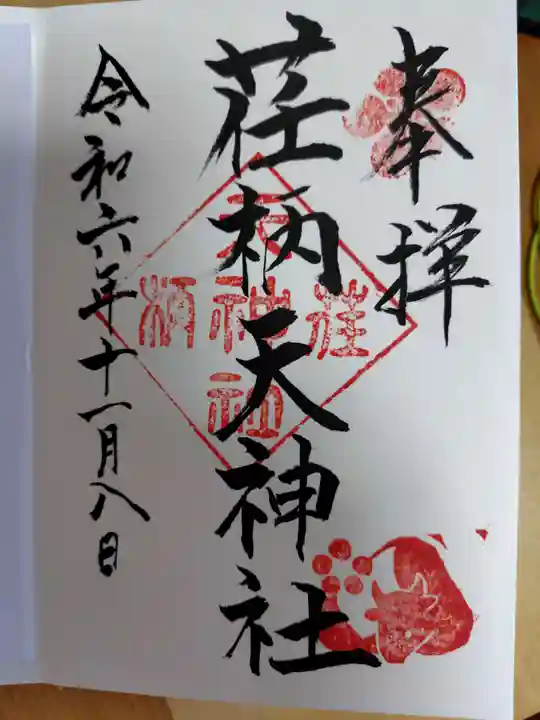 奉拝
荏柄天神社
荏
天神社
柄
令和六年十一月八日